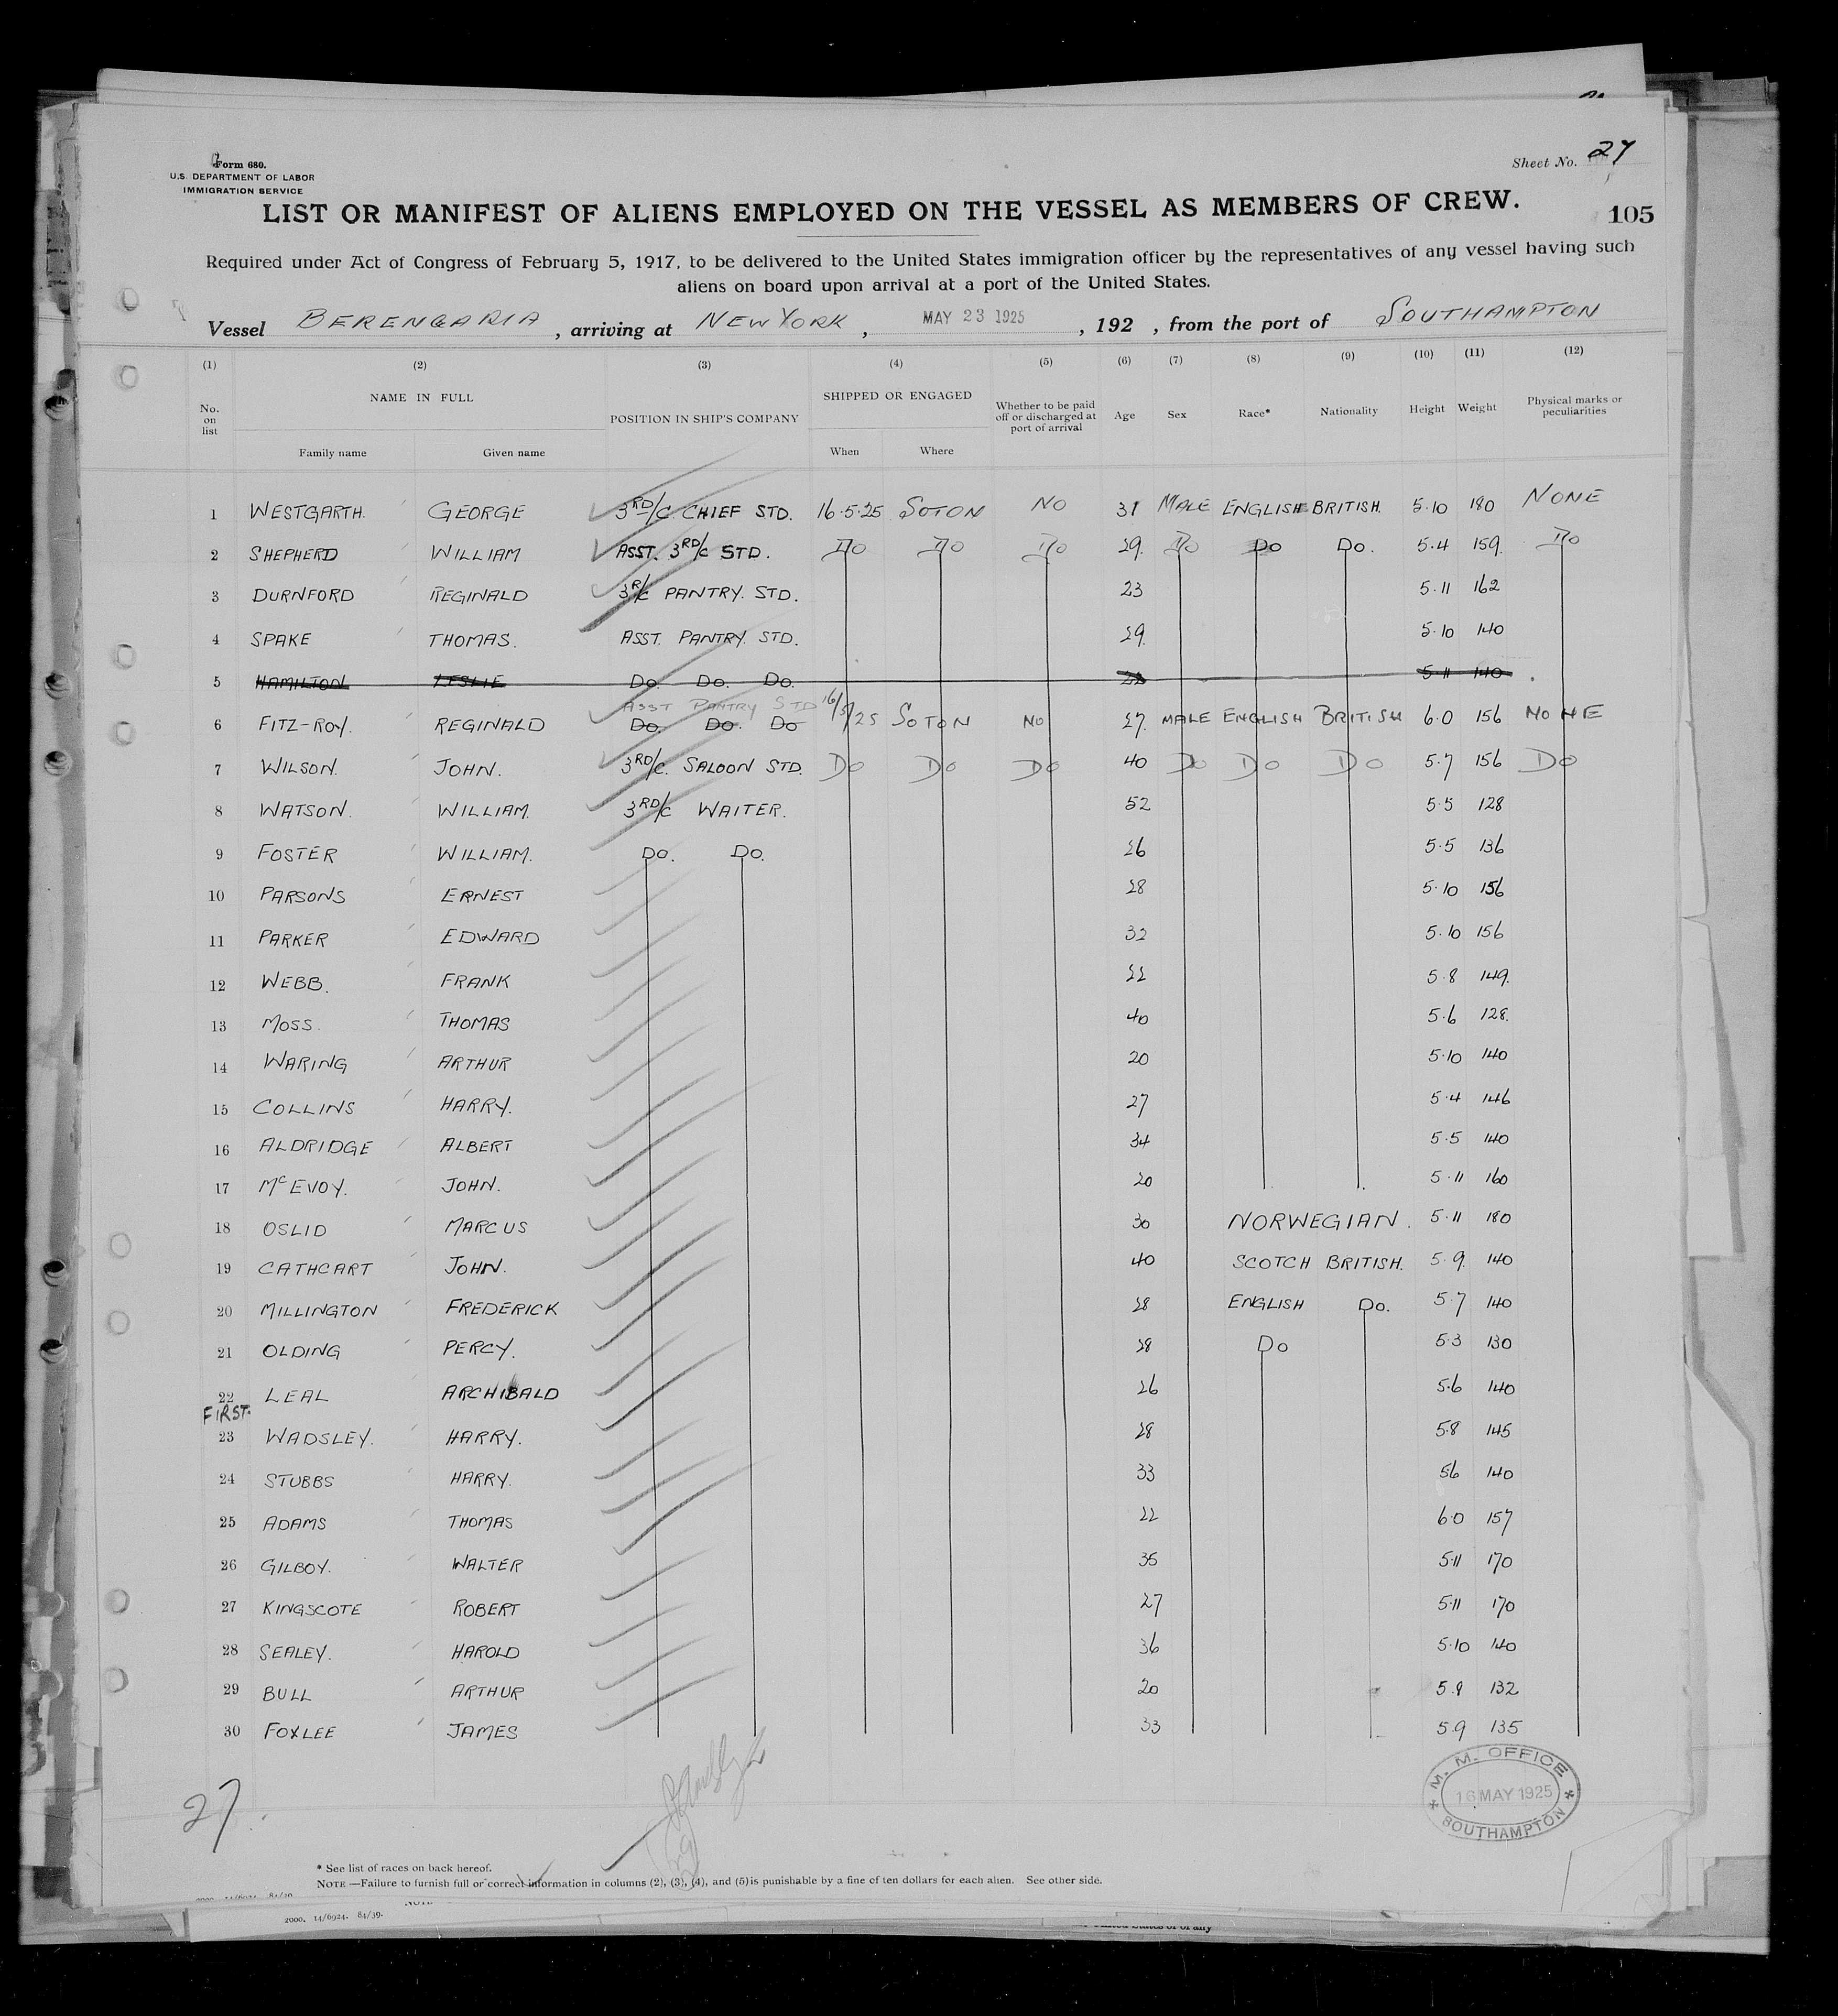 Form 680.
U.S. DEPARTMENT OF LABOR
IMMIGRATION SERVICE
Sheet No. 27
LIST OR MANIFEST OF ALIENS EMPLOYED ON THE VESSEL AS MEMBERS OF CREW.
105
Required under Act of Congress of February 5, 1917, to be delivered to the United States immigration officer by the representatives of any vessel having such
aliens on board upon arrival at a port of the United States.
Vessel BERENGARIA, arriving at NEW YORK, MAY 23 1925, 192 , from the port of SOUTHAMPTON
(1) (2) (3) (4) (5) (6) (7) (8) (9) (10) (11) (12)
No. on list NAME IN FULL POSITION IN SHIP'S COMPANY SHIPPED OR ENGAGED Whether to be paid off or discharged at port of arrival Age Sex Race* Nationality Height Weight Physical marks or peculiarities
Family name Given name When Where
1 WESTGARTH. GEORGE 3RD/C CHIEF STD. 16.5.25 SOTON NO 31 MALE ENGLISH BRITISH. 5.10 180 NONE
2 SHEPHERD WILLIAM ASST. 3RD/C STD. Do Do Do 29. Do Do Do. 5.4 159. Do
3 DURNFORD REGINALD 3R/C PANTRY. STD. 23 5.11 162
4 SPAKE THOMAS. ASST. PANTRY. STD. 29. 5.10 140
5 HAMILTON LESLIE Do. Do. Do. 5.11 140
ASST PANTRY STD
6 FITZ-ROY. REGINALD Do. Do. Do 16/5/25 SOTON NO 27. MALE ENGLISH BRITISH 6.0 156 NONE
7 WILSON. JOHN. 3RD/C. SALOON STD. Do Do Do 40 Do Do Do 5.7 156 Do
8 WATSON. WILLIAM. 3RD/C WAITER. 52 5.5 128
9 FOSTER WILLIAM. Do. Do. 26 5.5 136
10 PARSONS ERNEST 28 5.10 156
11 PARKER EDWARD 32 5.10 156
12 WEBB. FRANK 22 5.8 149.
13 MOSS. THOMAS 40 5.6 128.
14 WARING ARTHUR 20 5.10 140
15 COLLINS HARRY. 27 5.4 146
16 ALDRIDGE ALBERT 34 5.5 140
17 McEVOY. JOHN. 20 5.11 160
18 OSLID MARCUS 30 NORWEGIAN. 5.11 180
19 CATHCART JOHN. 40 SCOTCH BRITISH. 5.9. 140
20 MILLINGTON FREDERICK 28 ENGLISH Do. 5.7 140
21 OLDING PERCY. 28 Do 5.3 130
22 LEAL ARCHIBALD 26 5.6 140
FIRST.
23 WADSLEY. HARRY. 28 5.8 145
24 STUBBS HARRY. 33 56 140
25 ADAMS THOMAS 22 6.0 157
26 GILBOY. WALTER 35 5.11 170
27 KINGSCOTE ROBERT 27 5.11 170
28 SEALEY. HAROLD 36 5.10 140
29 BULL ARTHUR 20 5.9 132
30 FOXLEE JAMES 33 5.9 135
M. M. OFFICE
16 MAY 1925
SOUTHAMPTON
27.
* See list of races on back hereof.
NOTE—Failure to furnish full or correct information in columns (2), (3), (4), and (5) is punishable by a fine of ten dollars for each alien. See other side.
2000. 14/6924. 84/39.